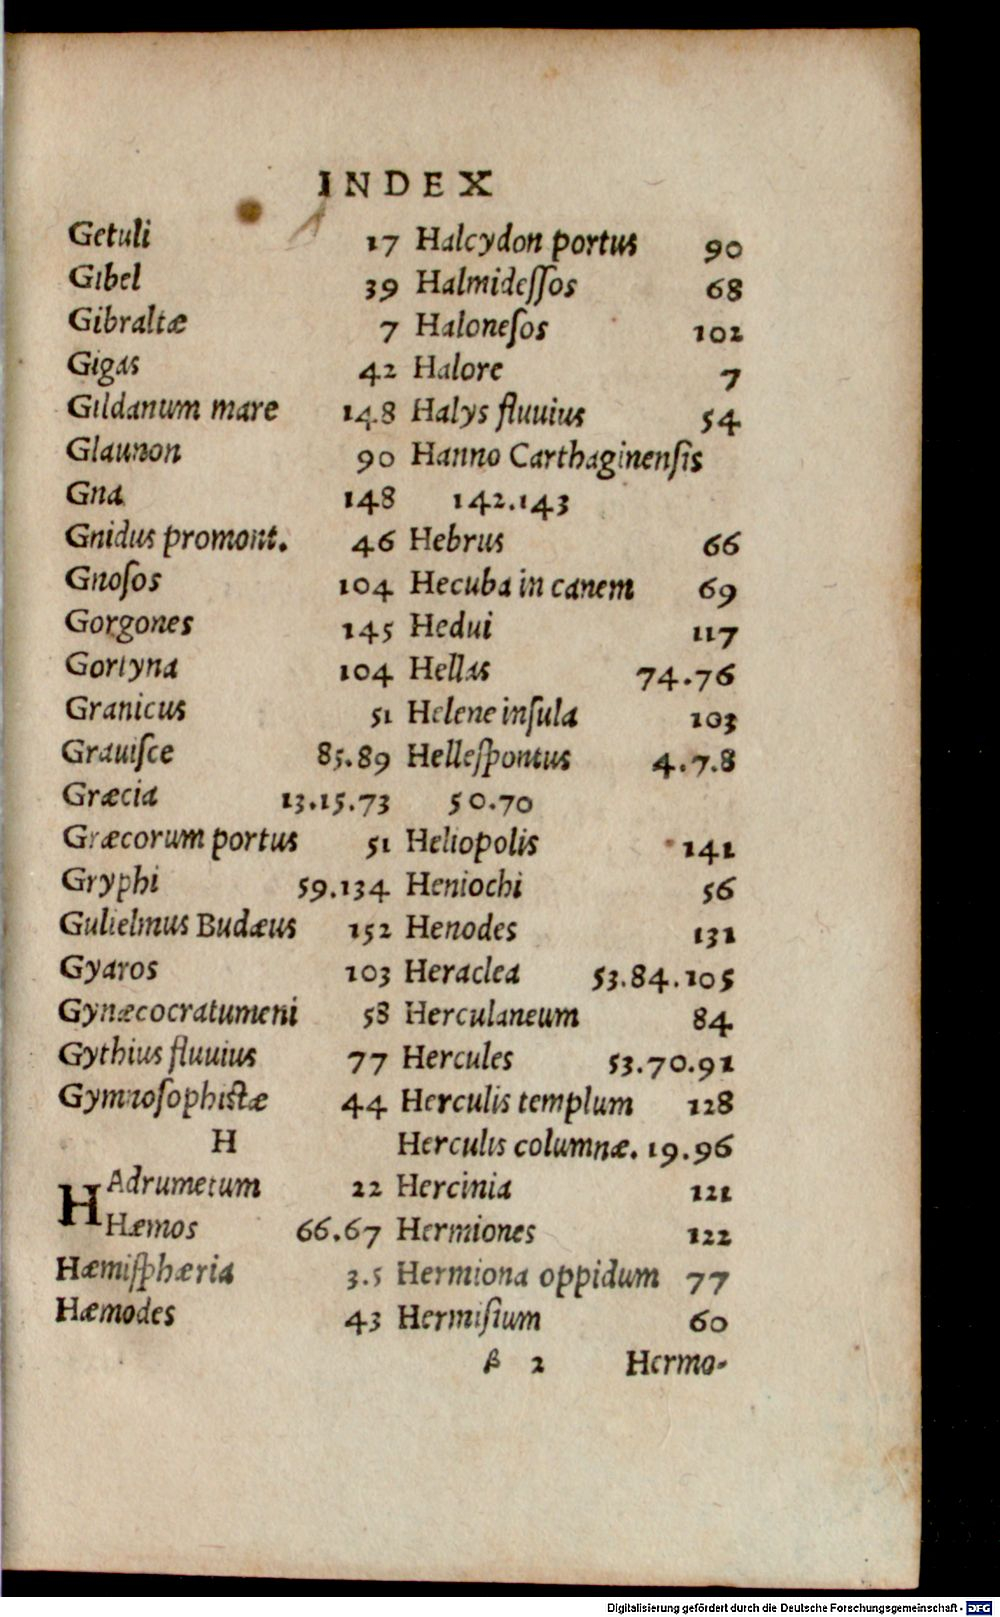 INDEX
Getuli 17
Gibel 39
Gibraltæ 7
Gigas 42
Gildanum mare 148
Glaunon 90
Gna 148
Gnidus promont. 46
Gnoſos 104
Gorgones 145
Gortyna 104
Granicus 51
Grauiſce 85.89
Græcia 13.15.73
Græcorum portus 51
Gryphi 59.134
Gulielmus Budæus 152
Gyaros 103
Gynæcocratumeni 58
Gythius fluuius 77
Gymnoſophistæ 44
H
HAdrumetum 22
Hæmos 66.67
Hæmiſphæria 3.5
Hæmodes 43
Halcydon portus 90
Halmideſſos 68
Haloneſos 102
Halore 7
Halys fluuius 54
Hanno Carthaginenſis
142.143
Hebrus 66
Hecuba in canem 69
Hedui 117
Hellas 74.76
Helene inſula 103
Helleſpontus 4.7.8
50.70
Heliopolis 141
Heniochi 56
Henodes 131
Heraclea 53.84.105
Herculaneum 84
Hercules 53.70.91
Herculis templum 128
Herculis columnæ. 19.96
Hercinia 121
Hermiones 122
Hermiona oppidum 77
Hermiſium 60
β 2 Hermo-
Digitalisierung gefördert durch die Deutsche Forschungsgemeinschaft - DFG